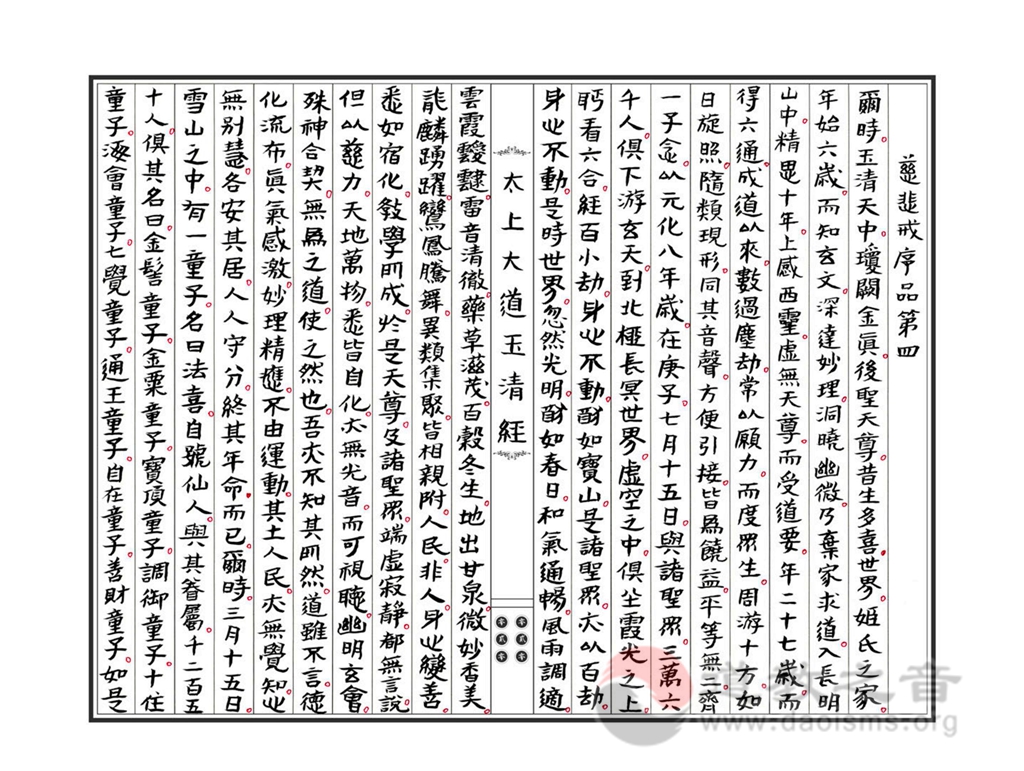 慈悲戒序品第四
爾時玉清天中瓊闕金真後聖天尊昔生多喜世界姬氏之家
年始六歲而知玄文深達妙理洞曉幽微乃棄家求道入長明
山中精思十年上感西靈虛無天尊而受道要年二十七歲而
得六通成道以來數過塵劫常以願力而度眾生周游十方如
日旋照隨類現形同其音聲方便引接皆爲饒益平等無二齊
一子念以元化八年歲在庚子七月十五日與諸聖眾三萬六
千人俱下游玄天到北極長冥世界虛空之中俱坐霞光之上
眄看六合經百小劫身心不動猷如寶山是諸聖眾亦以百劫
身心不動是時世界忽然光明猷如春日和氣通暢風雨調適
太上大道玉清經
零零
貳貳
零零
雲霞靉靆雷音清徹藥草滋茂百穀冬生地出甘泉微妙香美
能麟踴躍鸞鳳騰舞異類集聚皆相親附人民非人身心變善
悉如宿化教學所成於是天尊及諸聖眾端虛寂靜都無言說
但以慈力天地萬物悉皆自化亦無光音而可視聽幽明玄會
殊神合契無爲之道使之然也吾亦不知其所然道雖不言德
化流布真氣感激妙理精應不由運動其土人民亦無覺知心
無別慧各安其居人人守分終其年命而已爾時三月十五日
雪山之中有一童子名曰法喜自號仙人與其眷屬千二百五
十人俱其名曰金髻童子金粟童子寶頂童子調御童子十住
童子逐會童子七覺童子通王童子自在童子善財童子如是
道教之音
www.daoisms.org